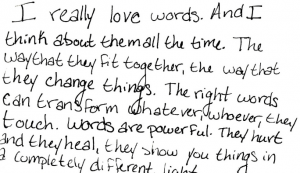 I really love words. And I
think about them all the time. The
way that they fit together, the way that
they change things. The right words
can transform whatever, whoever, they
touch. Words are powerful. They hurt
and they heal, they show you things in
a completely different light